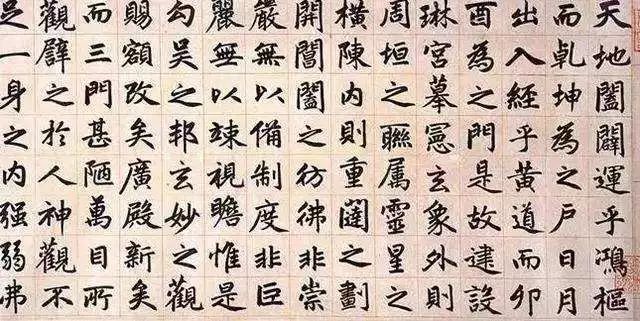 天地闔闢運乎鴻樞
而乹坤為之戶日月
出入經乎黃道而卯
酉為之門是故建設
琳宮摹憲玄象外則
周垣之聯属靈星之
橫陳內則重闥之劃
開閶闔之彷彿非崇
嚴無以備制度非巨
麗無以竦視瞻惟是
勾吳之邦玄妙之觀
賜額改矣廣殿新矣
而三門甚陋萬目所
觀辟之於人神觀不
足一身之內强弱弗